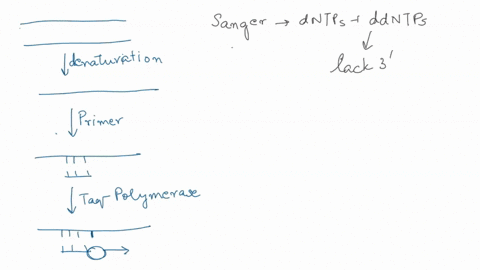 Sanger → dNTPs + ddNTPs
lack 3'
denaturation
Primer
Taq Polymerase